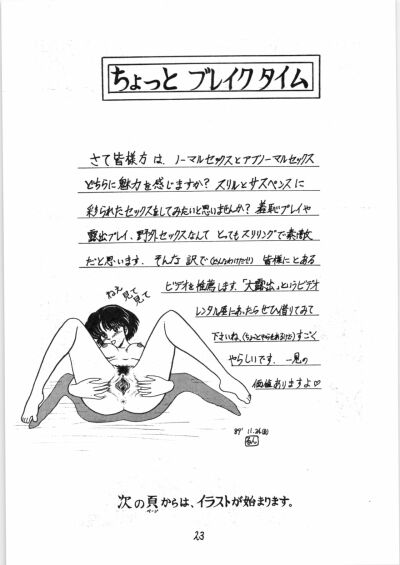 ちょっと ブレイクタイム
さて皆様方は、ノーマルセックスとアブノーマルセックス
どちらに魅力を感じますか？スリルとサスペンスに
彩られたセックスをしてみたいと思いませんか？羞恥プレイや
露出プレイ、野外セックスなんて とってもスリリングで素敵
だと思います。そんな訳で(どんなわけだせ) 皆様にとある
ビデオを推薦します。「大露出」というビデオ
レンタル屋にあったらぜひ借りてみて
下さいね、(ちょっとやらせもあるけど)すごく
やらしいです。一見の
価値ありますよ♡
ねぇ見て見て
89' 11.26(日)
るん
次の頁からは、イラストが始まります。
ページ
23